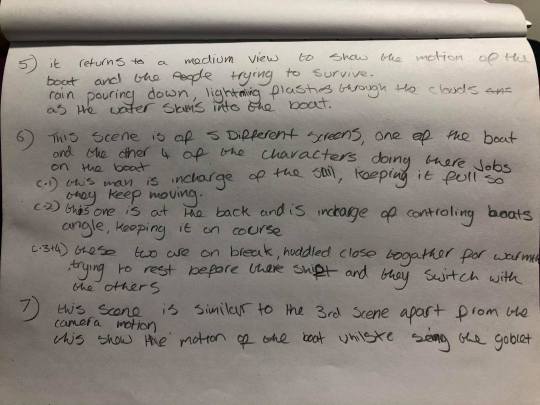 5) it returns to a medium view to show the motion of the
boat and the people trying to survive.
rain pouring down, lightning flashes through the clouds
as the water slams into the boat.
6) This scene is of 5 Different screens, one of the boat
and the other 4 of the characters doing there Jobs
on the boat
c.1) this man is incharge of the sail, keeping it full so
they keep moving.
c.2) this one is at the back and is incharge of controling boats
angle, keeping it on course
c.3+4) these two are on break, huddled close togather for warmth
trying to rest before there shift and they switch with
the others
7) this scene is similar to the 3rd scene apart from the
camera motion
this show the motion of the boat the goblet